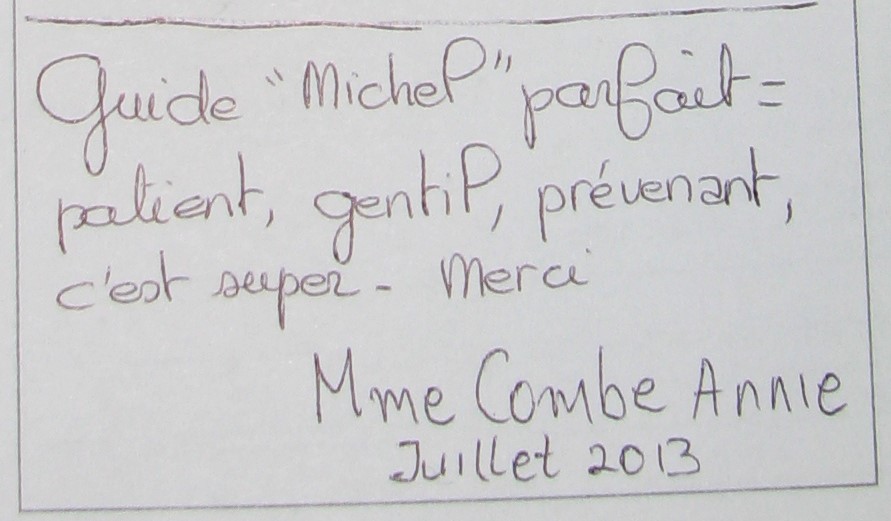 Guide "Michel" parfait =
patient, gentil, prévenant,
c'est super - Merci
Mme Combe Annie
Juillet 2013